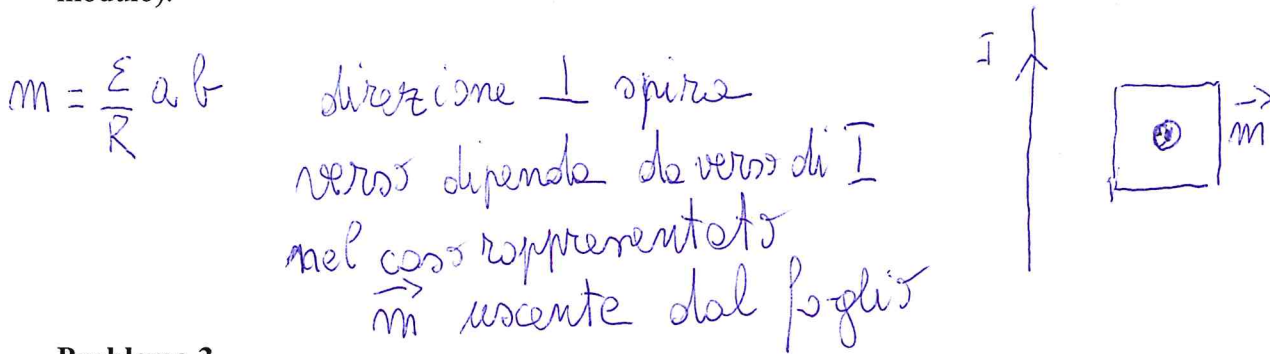 modulo).
m = ε/R a b
direzione ⊥ spira
verso dipende da verso di I
nel caso rappresentato
m⃗ uscente dal foglio
I
m⃗